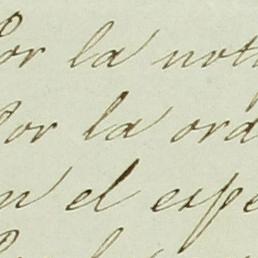 Por la not
Por la ord
en el espe